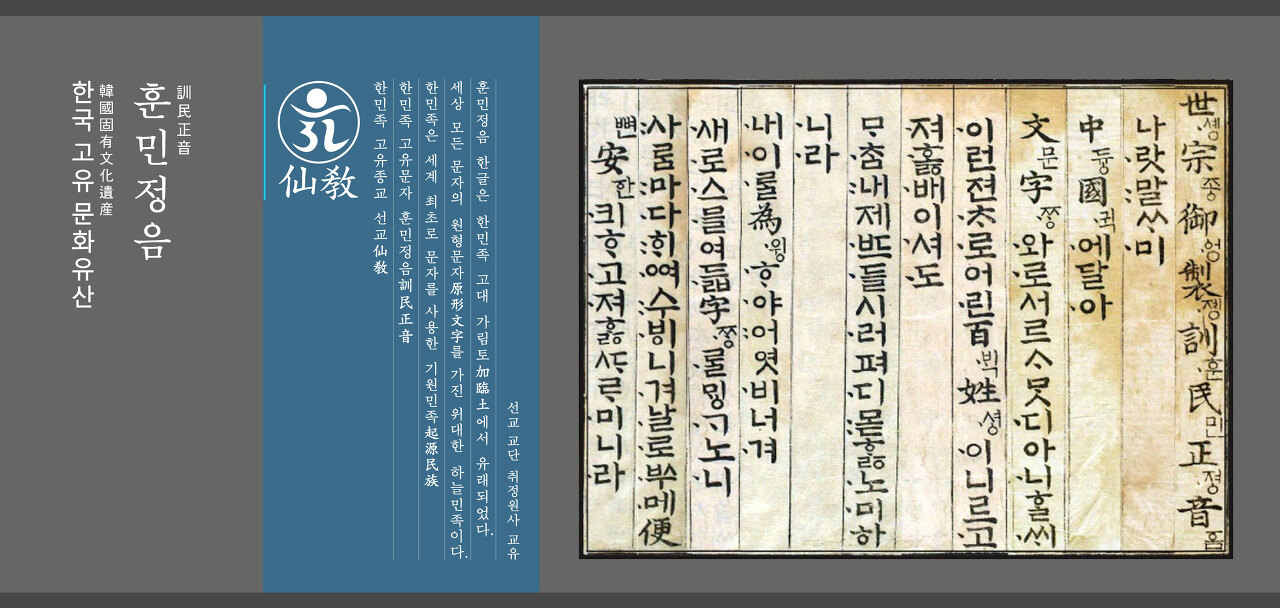 訓民正音
훈민정음
韓國固有文化遺産
한국 고유문화유산
仙教
선교 교단 취정원사 교유
훈민정음 한글은 한민족 고대 가림토加臨土에서 유래되었다.
세상 모든 문자의 원형문자原形文字를 가진 위대한 하늘민족이다.
한민족은 세계 최초로 문자를 사용한 기원민족起源民族
한민족 고유문자 훈민정음訓民正音
한민족 고유종교 선교仙敎
世솅宗종御엉製졩訓훈民민正졍音ᅙᅳᆷ
나랏말ᄊᆞ미
中듕國귁에달아
文문字ᄍᆞᆼ와로서르ᄉᆞᄆᆞᆺ디아니ᄒᆞᆯᄊᆡ
이런젼ᄎᆞ로어린百ᄇᆡᆨ姓셩이니르고
져ᄒᆞᇙ배이셔도
ᄆᆞᄎᆞᆷ내제ᄠᅳ들시러펴디몯ᄒᆞᇙ노미하
니라
내이ᄅᆞᆯ為윙ᄒᆞ야어엿비너겨
새로스믈여듧字ᄍᆞᆼᄅᆞᆯᄆᆡᇰᄀᆞ노니
사ᄅᆞᆷ마다ᄒᆡᅇᅧ수ᄫᅵ니겨날로ᄡᅮ메便
뼌安한킈ᄒᆞ고져ᄒᆞᇙᄯᆞᄅᆞ미니라